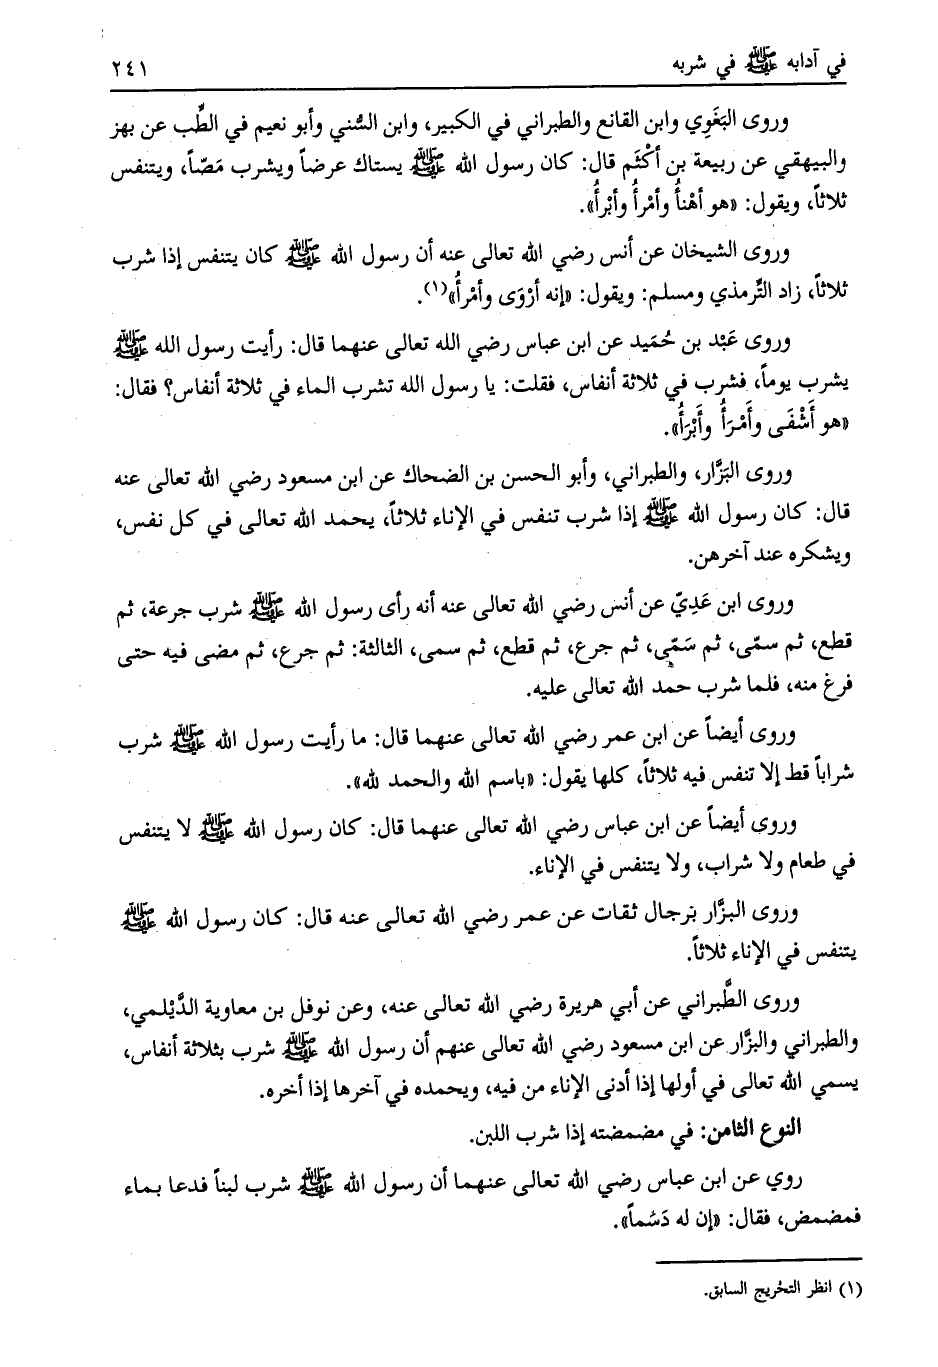 في آدابه ﷺ في شربه ٢٤١
وروى البَغَوِي وابن القانع والطبراني في الكبير، وابن السُّني وأبو نعيم في الطِّب عن بهز
والبيهقي عن ربيعة بن أكْثَم قال: كان رسول الله ﷺ يستاك عرضاً ويشرب مَصّاً، ويتنفس
ثلاثاً، ويقول: «هو أهْنأُ وأمْرأُ وأبْرأُ».
وروى الشيخان عن أنس رضي الله تعالى عنه أن رسول الله ﷺ كان يتنفس إذا شرب
ثلاثاً، زاد التِّرمذي ومسلم: ويقول: «إنه أرْوَى وأمْرأُ»(١).
وروى عَبْد بن حُمَيد عن ابن عباس رضي الله تعالى عنهما قال: رأيت رسول الله ﷺ
يشرب يوماً، فشرب في ثلاثة أنفاس، فقلت: يا رسول الله تشرب الماء في ثلاثة أنفاس؟ فقال:
«هو أَشْفَى وأَمْرَأُ وأَبْرَأُ».
وروى البَزَّار، والطبراني، وأبو الحسن بن الضحاك عن ابن مسعود رضي الله تعالى عنه
قال: كان رسول الله ﷺ إذا شرب تنفس في الإناء ثلاثاً، يحمد الله تعالى في كل نفس،
ويشكره عند آخرهن.
وروى ابن عَدِيّ عن أنس رضي الله تعالى عنه أنه رأى رسول الله ﷺ شرب جرعة، ثم
قطع، ثم سمّى، ثم سَمّى، ثم جرع، ثم قطع، ثم سمى، الثالثة: ثم جرع، ثم مضى فيه حتى
فرغ منه، فلما شرب حمد الله تعالى عليه.
وروى أيضاً عن ابن عمر رضي الله تعالى عنهما قال: ما رأيت رسول الله ﷺ شرب
شراباً قط إلا تنفس فيه ثلاثاً، كلها يقول: «باسم الله والحمد لله».
وروى أيضاً عن ابن عباس رضي الله تعالى عنهما قال: كان رسول الله ﷺ لا يتنفس
في طعام ولا شراب، ولا يتنفس في الإناء.
وروى البزَّار برجال ثقات عن عمر رضي الله تعالى عنه قال: كان رسول الله ﷺ
يتنفس في الإناء ثلاثاً.
وروى الطَّبراني عن أبي هريرة رضي الله تعالى عنه، وعن نوفل بن معاوية الدَّيْلمي،
والطبراني والبزَّار عن ابن مسعود رضي الله تعالى عنهم أن رسول الله ﷺ شرب بثلاثة أنفاس،
يسمي الله تعالى في أولها إذا أدنى الإناء من فيه، ويحمده في آخرها إذا أخره.
النوع الثامن: في مضمضته إذا شرب اللبن.
روي عن ابن عباس رضي الله تعالى عنهما أن رسول الله ﷺ شرب لبناً فدعا بماء
فمضمض، فقال: «إن له دَسَماً».
(١) انظر التخريج السابق.